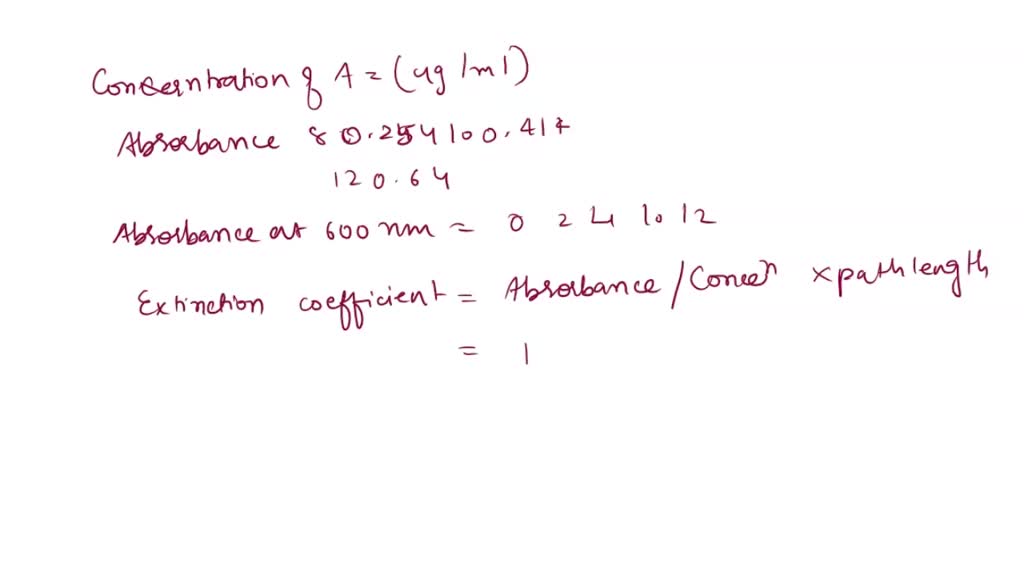 Conserntration of A = (ug/ml)
Absorbance 8 0.254 100.417
120.64
Absorbance at 600 nm = 0 2 4 10 12
Extinction coefficient = Absorbance / Concen × path length
= 1